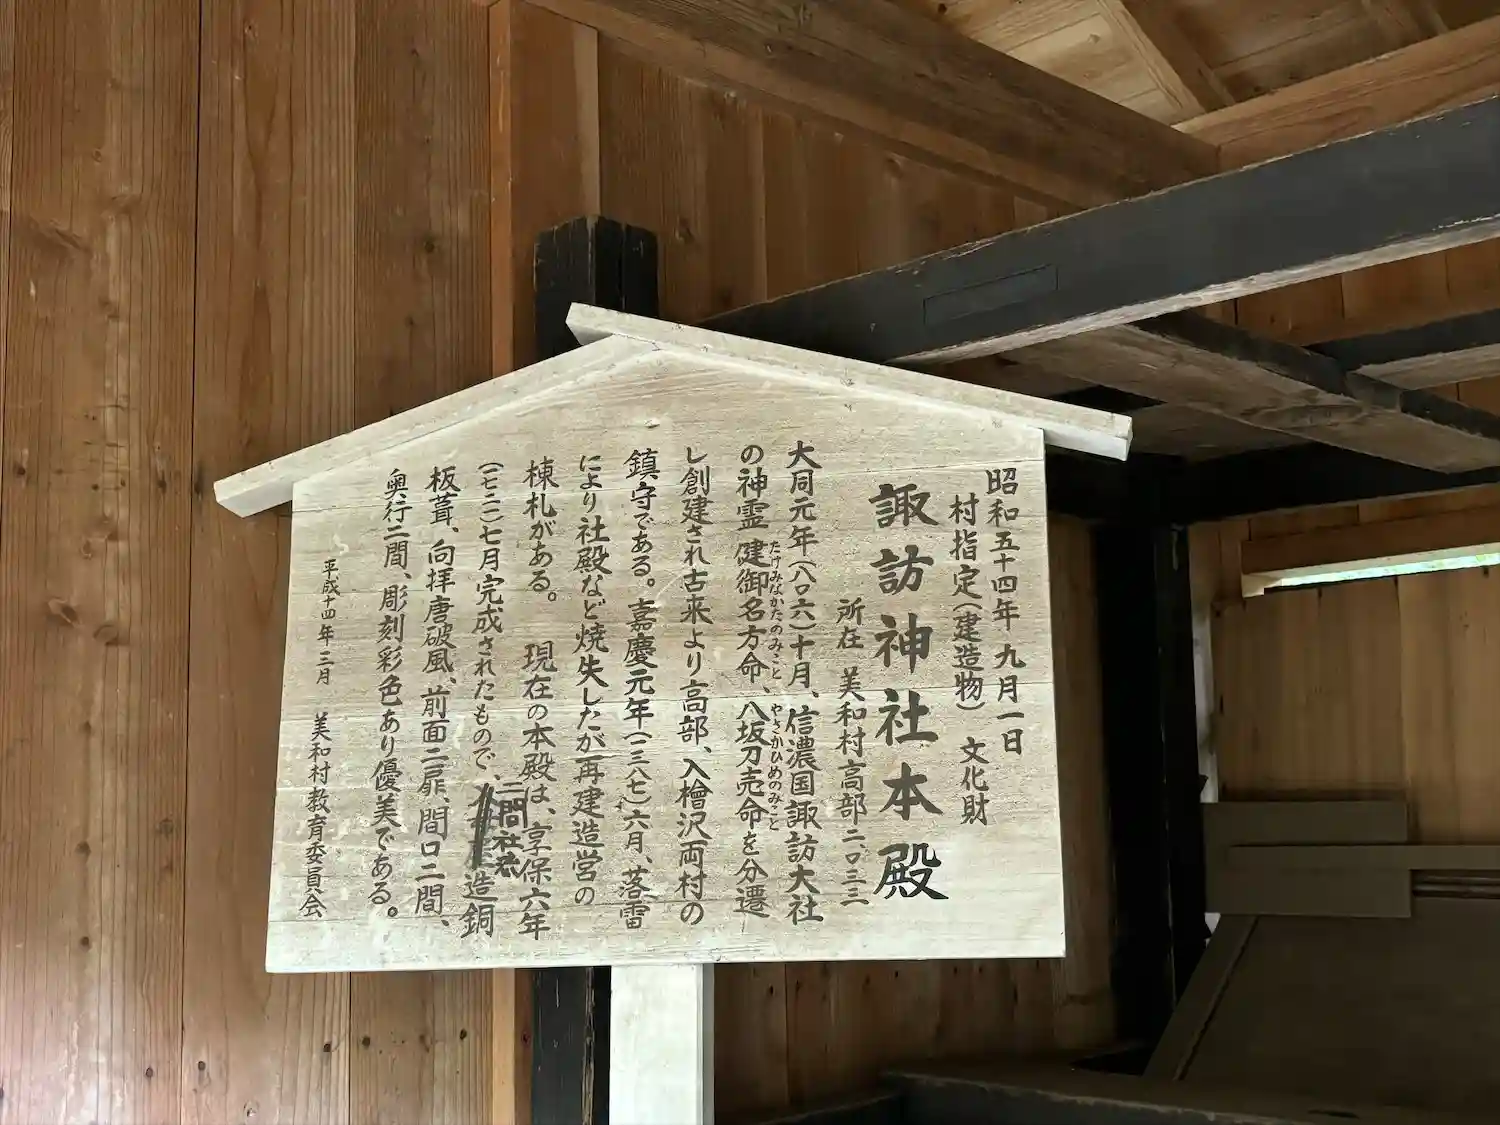 昭和五十四年九月一日
村指定(建造物) 文化財
諏訪神社本殿
所在 美和村高部二、〇三三
大同元年(八〇六)十月、信濃国諏訪大社
の神霊健御名方命、八坂刀売命を分遷
たけみなかたのみこと
やさかひめのみこと
し創建され古来より高部、入檜沢両村の
鎮守である。嘉慶元年(一三八七)六月、落雷
により社殿など焼失したが再建造営の
棟札がある。 現在の本殿は、享保六年
(一七二一)七月完成されたもので、
二間社流
造銅
板葺、向拝唐破風、前面二扉、間口二間、
奥行二間、彫刻彩色あり優美である。
平成十四年三月 美和村教育委員会